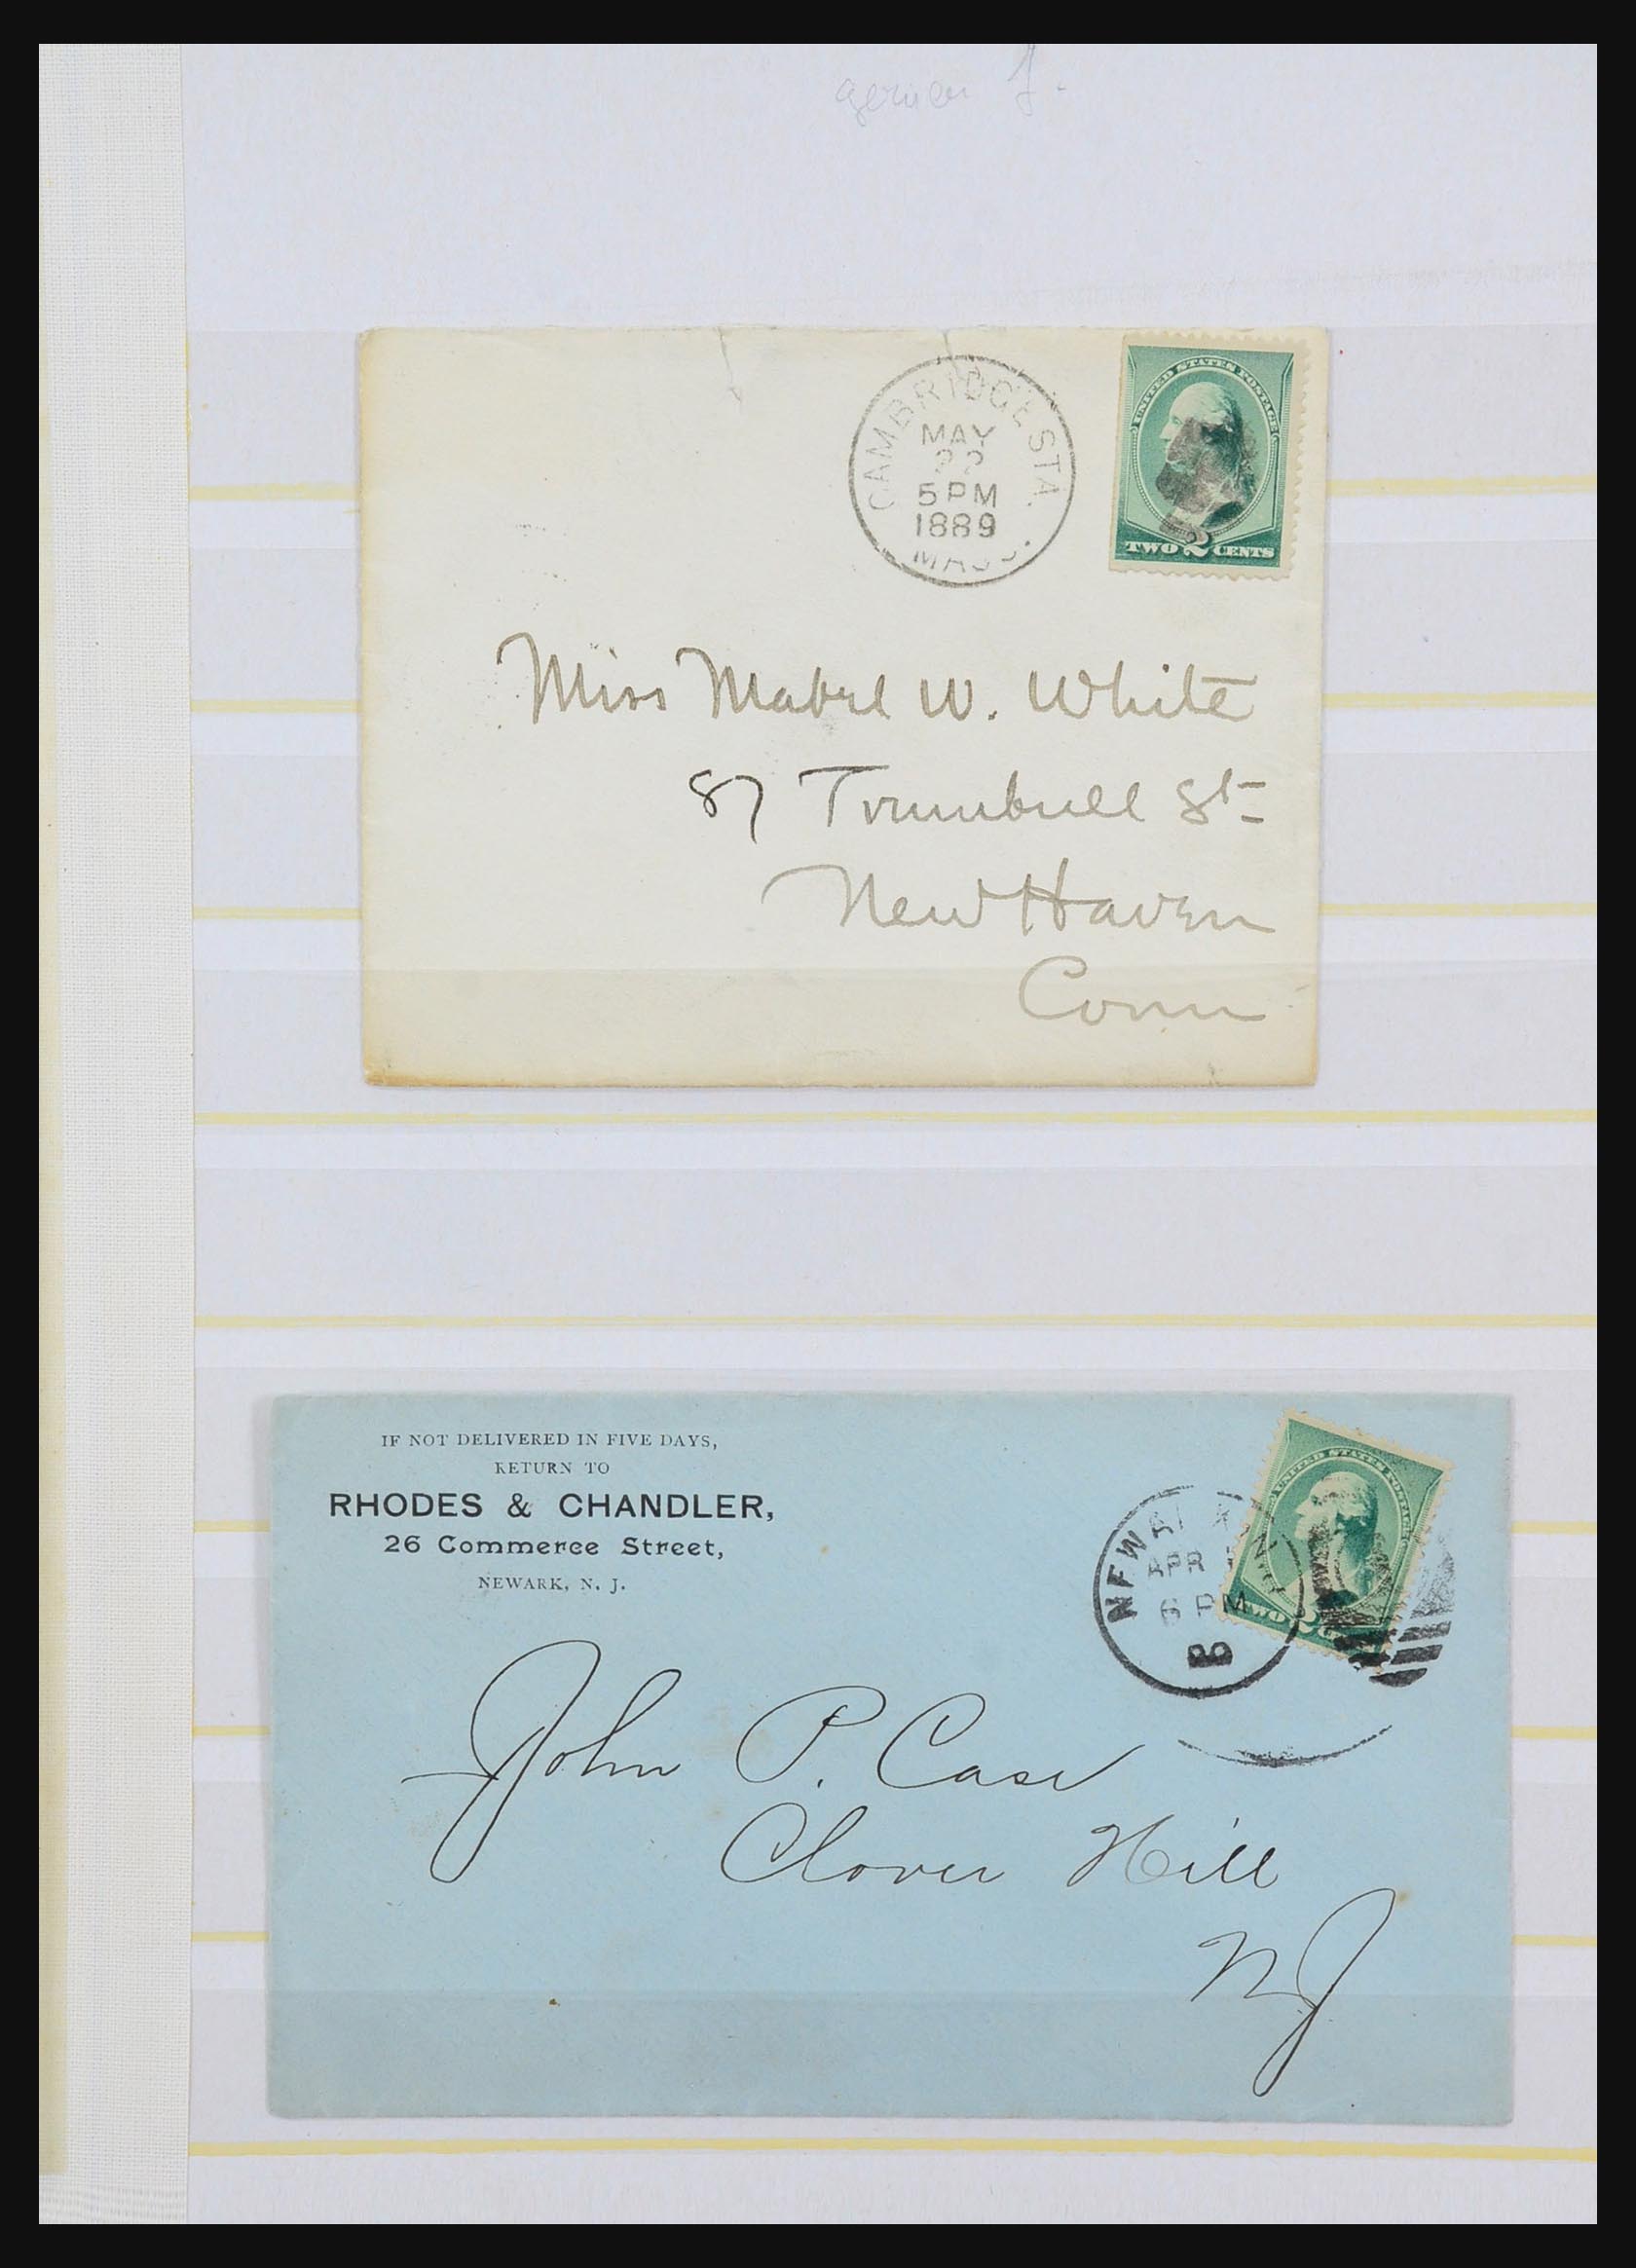 CAMBRIDGE STA.
MAY
22
5 PM
1889
MASS.
UNITED STATES POSTAGE
TWO 2 CENTS
Miss Mabel W. White
87 Trumbull St
New Haven
Conn
IF NOT DELIVERED IN FIVE DAYS,
RETURN TO
RHODES & CHANDLER,
26 Commerce Street,
NEWARK, N. J.
NEWARK N.J.
APR
6 PM
B
UNITED STATES POSTAGE
TWO 2
John P. Case
Clover Hill
NJ